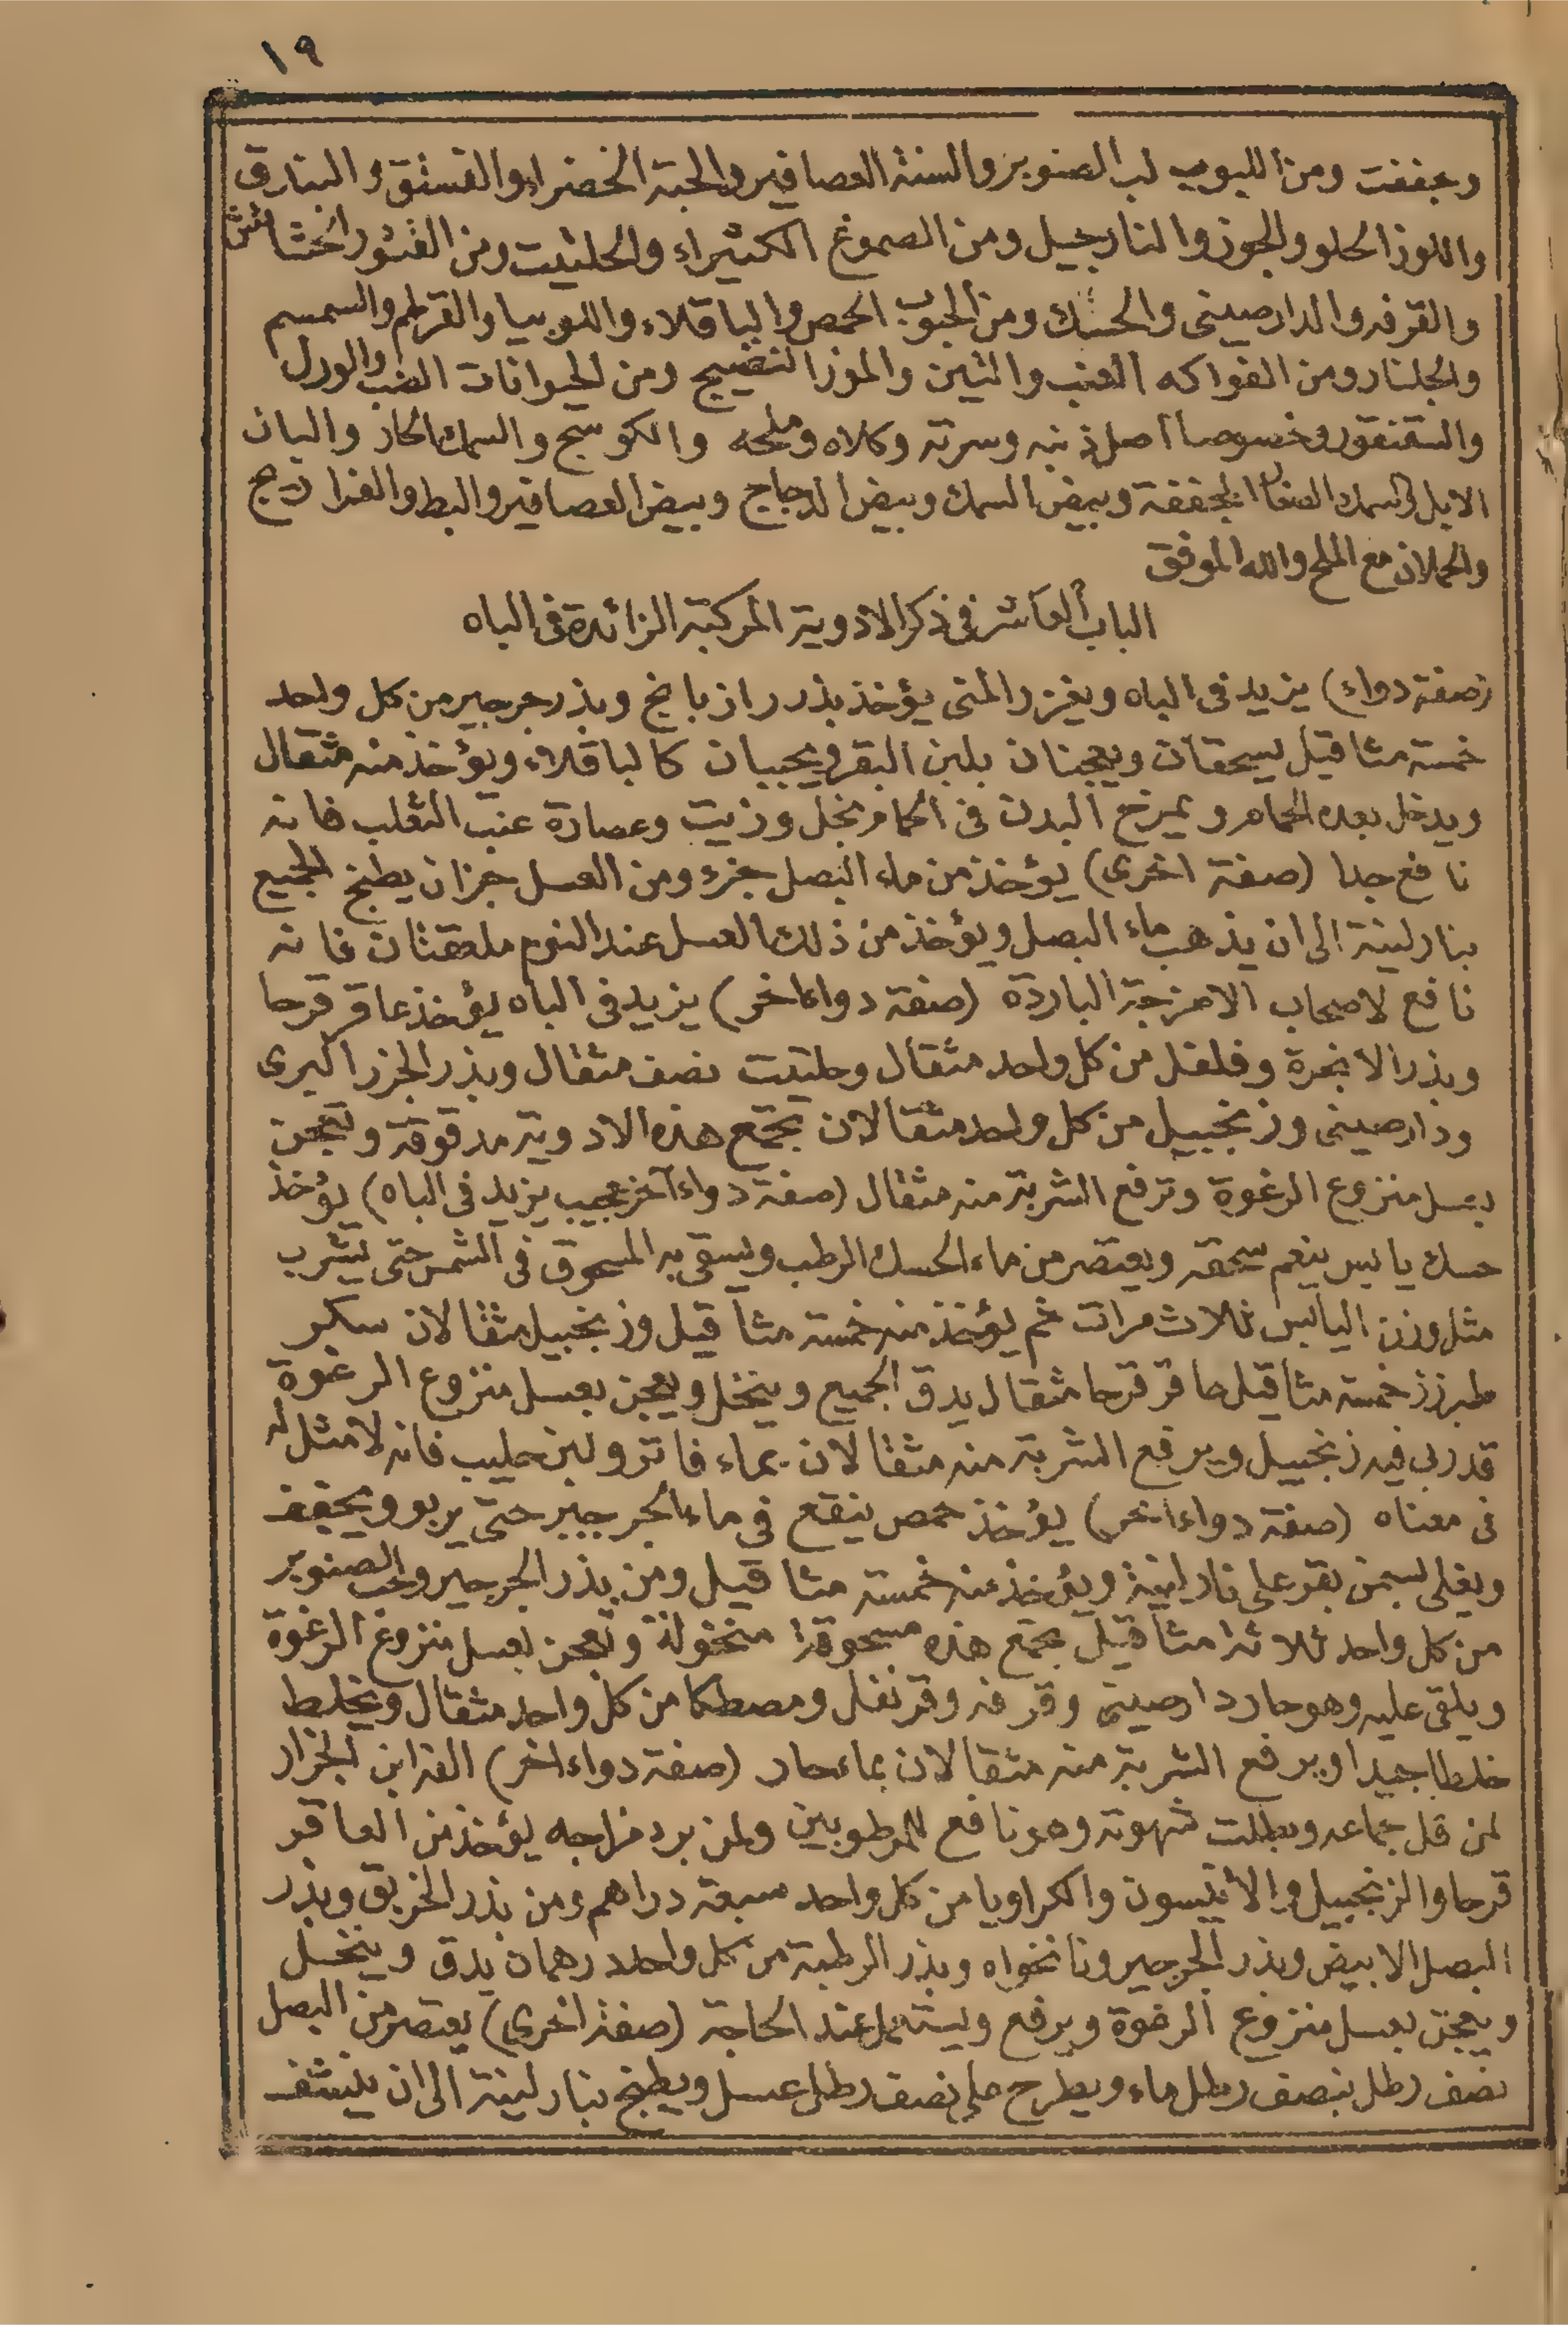 ١٩
وجففت ومن اللبوب لب الصنوبر والسنة العصافير والحبة الخضراء والفستق والبندق
واللوز الحلو والجوز والنارجيل ومن الصموغ الكثيراء والحلتيت ومن القشور الخشاش
والقرفه والدارصينى والحسك ومن الحبوب الحمص والباقلاء واللوبيا والقرطم والسمسم
والجلنار ومن الفواكه العنب والتين والموز النضيج ومن الحيوانات الضب والورل
والسقنقور خصوصا اصل ذنبه وسرته وكلاه وملحه والكوسج والسمك الحار والبان
الابل والسمك الصغار المجففة وبيض السمك وبيض الدجاج وبيض العصافير والبط والفراريج
والحملان مع الملح والله الموفق
الباب العاشر فى ذكر الادوية المركبة الزائدة فى الباه
(صفة دواء) يزيد فى الباه ويغزر المنى يؤخذ بذر رازيانج وبذر جرجير من كل واحد
خمسة مثاقيل يسحقان ويعجنان بلبن البقر ويحببان كالباقلاء ويؤخذ منه مثقال
ويدخل بعده الحمام ويمرخ البدن فى الحمام بخل وزيت وعصارة عنب الثعلب فانه
نافع جدا (صفة اخرى) يؤخذ من ماء البصل جزء ومن العسل جزان يطبخ الجميع
بنار لينة الى ان يذهب ماء البصل ويؤخذ من ذلك العسل عند النوم ملعقتان فانه
نافع لاصحاب الامزجة الباردة (صفة دواء اخر) يزيد فى الباه يؤخذ عاقر قرحا
وبذر الانجرة وفلفل من كل واحد مثقال وحلتيت نصف مثقال وبذر الجزر البرى
ودارصينى وزنجبيل من كل واحد مثقالان تجمع هذه الادوية مدقوقة وتعجن
بعسل منزوع الرغوة وترفع الشربة منه مثقال (صفة دواء آخر عجيب يزيد فى الباه) يؤخذ
حسك يابس ينعم سحقه ويعتصر من ماء الحسك الرطب ويسقى به المسحوق فى الشمس حتى يشرب
مثل وزن اليابس ثلاث مرات ثم يؤخذ منه خمسة مثاقيل وزنجبيل مثقالان سكر
طبرزذ خمسة مثاقيل عاقر قرحا مثقال يدق الجميع وينخل ويعجن بعسل منزوع الرغوة
قد ربى فيه زنجبيل ويرفع الشربة منه مثقالان بماء فاتر ولبن حليب فانه لا مثل له
فى معناه (صفة دواء اخر) يؤخذ حمص ينقع فى ماء الجرجير حتى يربو ويجفف
ويغلى بسمن بقر على نار لينة ويؤخذ منه خمسة مثاقيل ومن بذر الجرجير وحب الصنوبر
من كل واحد ثلاثة مثاقيل تجمع هذه مسحوقة منخولة وتعجن بعسل منزوع الرغوة
ويلقى عليه وهو حار دارصينى وقرفه وقرنفل ومصطكا من كل واحد مثقال ويخلط
خلطا جيدا ويرفع الشربة منه مثقالان بماء حار (صفة دواء اخر) الفه ابن الجزار
لمن قل جماعه وبطلت شهوته وهو نافع للمرطوبين ولمن برد مزاجه يؤخذ من العاقر
قرحا والزنجبيل والأنيسون والكراويا من كل واحد سبعة دراهم ومن بذر الخربق وبذر
البصل الابيض وبذر الجرجير ونانخواه وبذر الرطبة من كل واحد درهمان يدق وينخل
ويعجن بعسل منزوع الرغوة ويرفع ويستعمل عند الحاجة (صفة اخرى) يعتصر من البصل
نصف رطل بنصف رطل ماء ويطرح على نصف رطل عسل ويطبخ بنار لينة الى ان ينشف